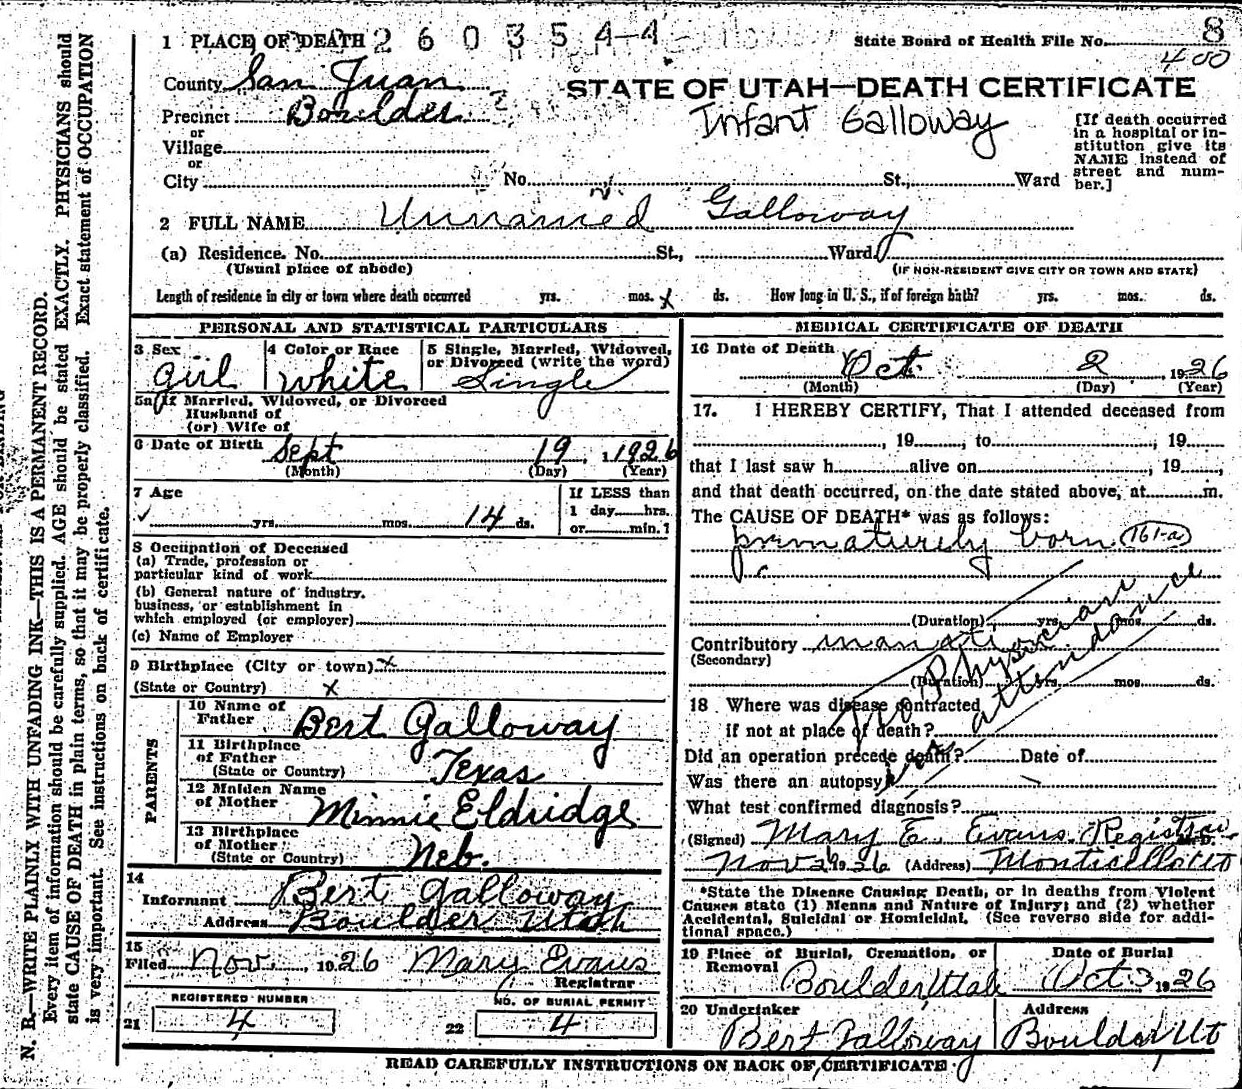 1 PLACE OF DEATH 2 6 0 3 5 4 4
State Board of Health File No. 8
400
County San Juan
STATE OF UTAH—DEATH CERTIFICATE
Precinct Boulder
Infant Galloway
or
Village
or
City No. St., Ward
[If death occurred
in a hospital or in-
stitution give its
NAME instead of
street and num-
ber.]
2 FULL NAME Unnamed Galloway
(a) Residence. No. St., Ward
(Usual place of abode) (IF NON-RESIDENT GIVE CITY OR TOWN AND STATE)
Length of residence in city or town where death occurred yrs. mos. x ds. How long in U. S., if of foreign birth? yrs. mos. ds.
PERSONAL AND STATISTICAL PARTICULARS
3 Sex 4 Color or Race 5 Single, Married, Widowed,
or Divorced (write the word)
girl white Single
5a If Married, Widowed, or Divorced
Husband of
(or) Wife of
6 Date of Birth Sept 19, 1926
(Month) (Day) (Year)
7 Age
yrs. mos. 14 ds.
If LESS than
1 day hrs.
or min.?
8 Occupation of Deceased
(a) Trade, profession or
particular kind of work
(b) General nature of industry,
business, or establishment in
which employed (or employer)
(c) Name of Employer
9 Birthplace (City or town) x
(State or Country) x
PARENTS
10 Name of
Father Bert Galloway
11 Birthplace
of Father
(State or Country) Texas
12 Maiden Name
of Mother Minnie Eldridge
13 Birthplace
of Mother
(State or Country) Neb.
14
Informant Bert Galloway
Address Boulder Utah
15
Filed Nov. , 1926 Mary Evans
Registrar
REGISTERED NUMBER NO. OF BURIAL PERMIT
21 4 22 4
MEDICAL CERTIFICATE OF DEATH
16 Date of Death Oct. 2 1926
(Month) (Day) (Year)
17. I HEREBY CERTIFY, That I attended deceased from
, 19 , to , 19
that I last saw h alive on , 19 ,
and that death occurred, on the date stated above, at m.
The CAUSE OF DEATH* was as follows:
prematurely born (161-a)
(Duration) yrs. mos. ds.
Contributory
(Secondary)
(Duration) yrs. mos. ds.
no Physician
attendance
18 Where was disease contracted
if not at place of death?
Did an operation precede death? Date of
Was there an autopsy
What test confirmed diagnosis?
(Signed) Mary E. Evans. Registrar M. D.
Nov 29 1926 (Address) Monticello Ut
*State the Disease Causing Death, or in deaths from Violent
Causes state (1) Means and Nature of Injury; and (2) whether
Accidental, Suicidal or Homicidal. (See reverse side for addi-
tional space.)
19 Place of Burial, Cremation, or
Removal Date of Burial
Boulder, Utah Oct 3, 1926
20 Undertaker Address
Bert Galloway Boulder, Ut
READ CAREFULLY INSTRUCTIONS ON BACK OF CERTIFICATE
N. B.—WRITE PLAINLY WITH UNFADING INK—THIS IS A PERMANENT RECORD.
Every item of information should be carefully supplied. AGE should be stated EXACTLY. PHYSICIANS should
state CAUSE OF DEATH in plain terms, so that it may be properly classified. Exact statement of OCCUPATION
is very important. See instructions on back of certificate.